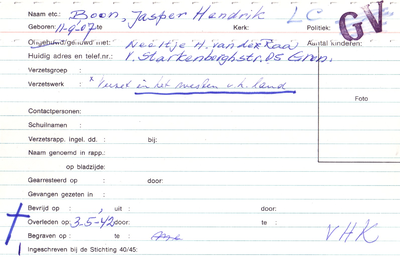 Naam etc.: Boon, Jasper Hendrik LC GV
Geboren: 11-9-07 te Kerk: Politiek:
Ongehuwd/gehuwd met: Neeltje H. van der Raa Aantal kinderen:
Huidig adres en telef.nr.: v. Starkenborghstr. 05 Gron.
Verzetsgroep :
Verzetswerk : x Verzet in het westen v.h. land
Foto
Contactpersonen:
Schuilnaam :
Verzetsrapp. ingel. dd. : bij:
Naam genoemd in rapp.:
op bladzijde:
Gearresteerd op : door:
Gevangen gezeten in :
Bevrijd op : , uit : door:
† Overleden op: 3-5-42 door: te : VHK
Begraven op : te :
Ingeschreven bij de Stichting 40/45: